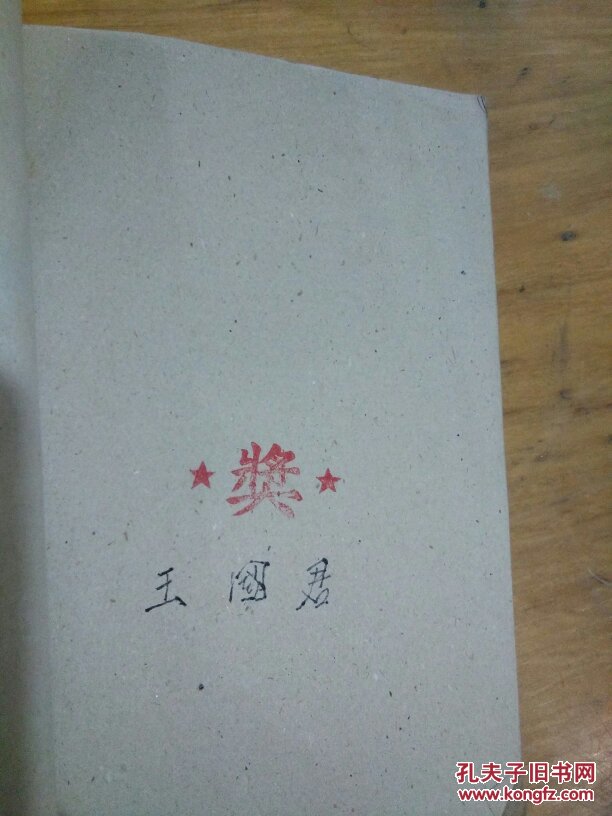 ★獎★
王國君
孔夫子旧书网
www.kongfz.com